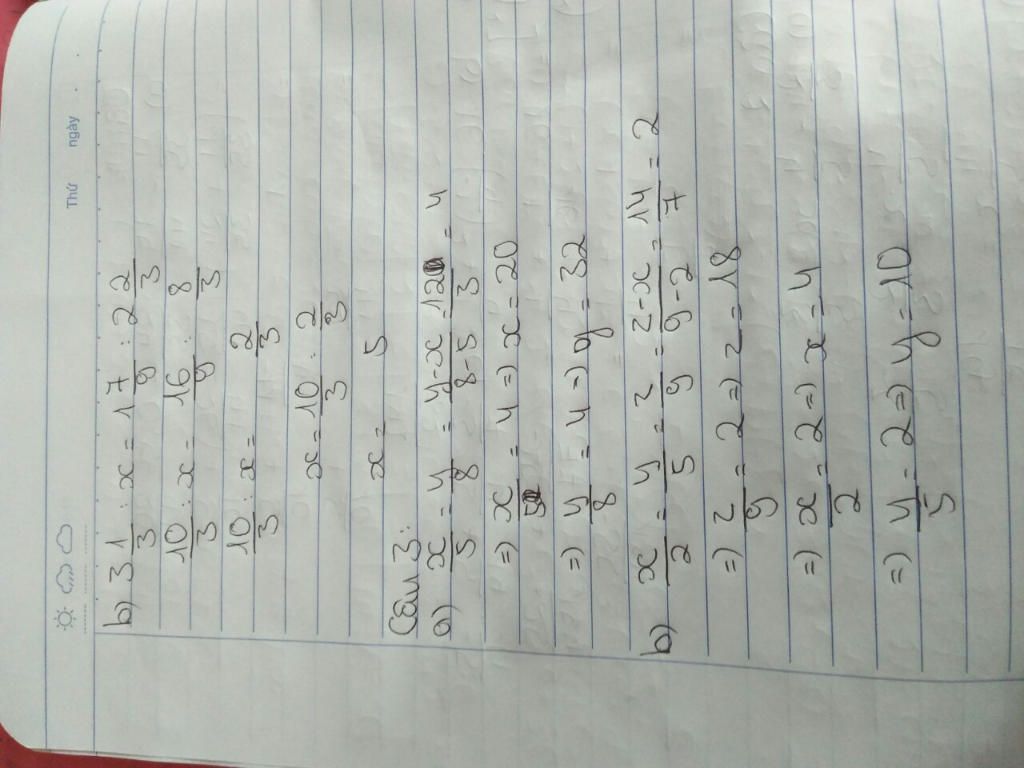 Thứ ngày
b) 3 1/3 : x = 1 7/9 : 2 2/3
10/3 : x = 16/9 : 8/3
10/3 : x = 2/3
x = 10/3 : 2/3
x = 5
Câu 3:
a) x/5 = y/8 = y-x/8-5 = 12/3 = 4
=> x/5 = 4 => x = 20
=> y/8 = 4 => y = 32
b) x/2 = y/5 = z/9 = z-x/9-2 = 14/7 = 2
=> z/9 = 2 => z = 18
=> x/2 = 2 => x = 4
=> y/5 = 2 => y = 10